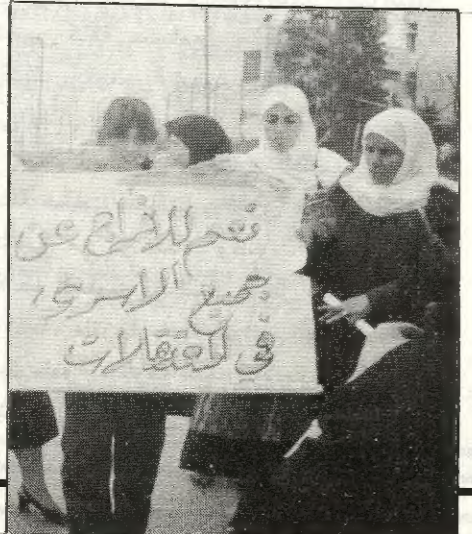 نعم للافراج عن
جميع الاسرى
في المعتقلات